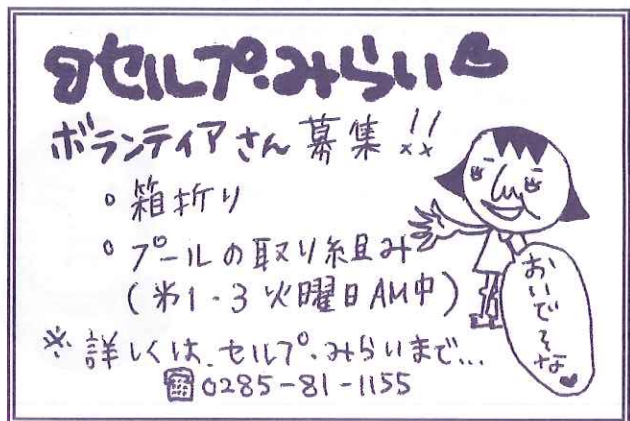 セルプ・みらい
ボランティアさん募集!!
。箱折り
。プールの取り組み
(第1・3火曜日AM中)
※詳しくは、セルプ・みらいまで...
☎0285-81-1155
おいでそな♥